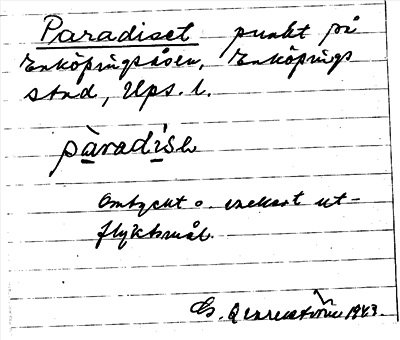 Paradiset punkt på
Enköpingsåsen, Enköpings
stad, Ups. l.
pàradìsh
Omtyckt o. enellert ut-
flyktsmål.
1943.